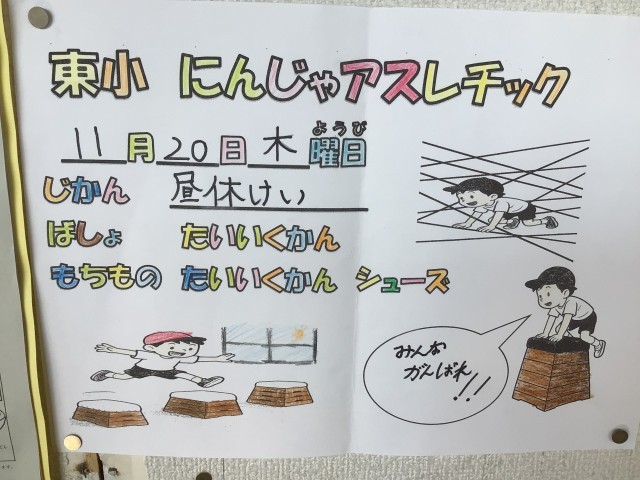 東小 にんじゃアスレチック
ようび
11月20日木曜日
じかん 昼休けい
ばしょ たいいくかん
もちもの たいいくかん シューズ
みんな
がんばれ!!!